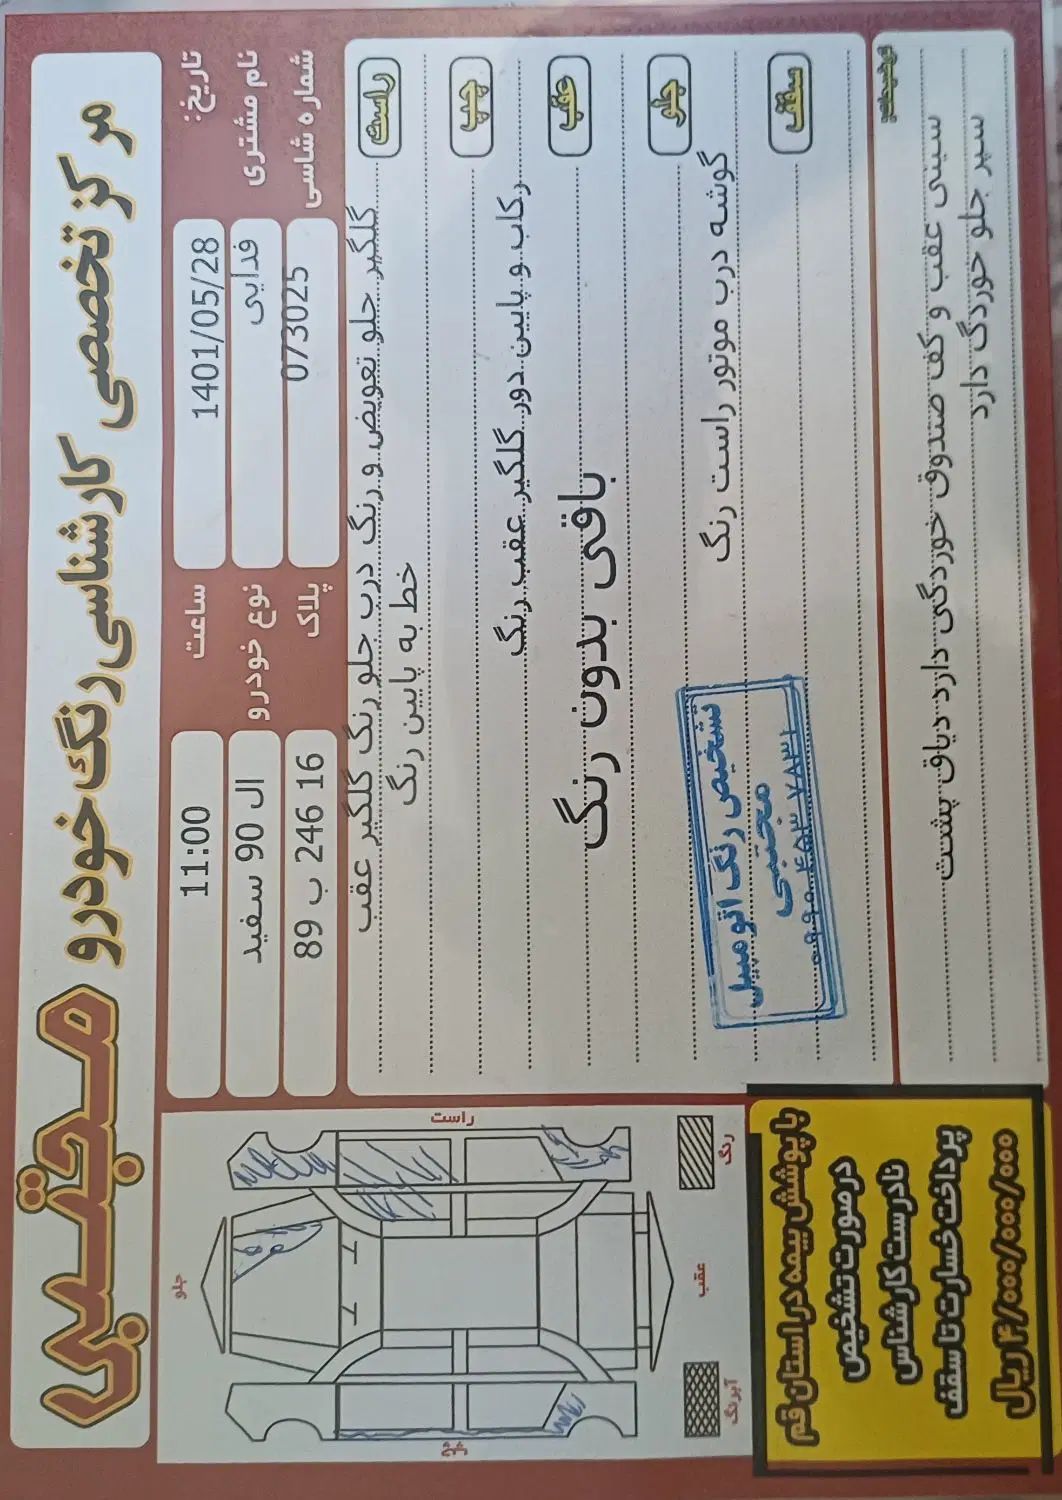 مرکز تخصصی کارشناسی رنگ خودرو مجتبی
تاریخ: 1401/05/28 ساعت 11:00
نام مشتری فدایی نوع خودرو ال 90 سفید
شماره شاسی 073025 پلاک 89 ب 246 16
راست گلگیر جلو تعویض و رنگ درب جلو رنگ گلگیر عقب
خط به پایین رنگ
چپ
رکاب و پایین دور گلگیر عقب رنگ
عقب
باقی بدون رنگ
جلو
گوشه درب موتور راست رنگ
سقف
تشخیص رنگ اتومبیل
مجتبی
توضیحات:
سینی عقب و کف صندوق خوردگی دارد دیاق پشت
سپر جلو خوردگ دارد
راست
جلو
عقب
چپ
رنگ
آبرنگ
با پوشش بیمه در استان قم
در صورت تشخیص
نادرست کارشناس
پرداخت خسارت تا سقف
۴/۰۰۰/۰۰۰/۰۰۰ ریال